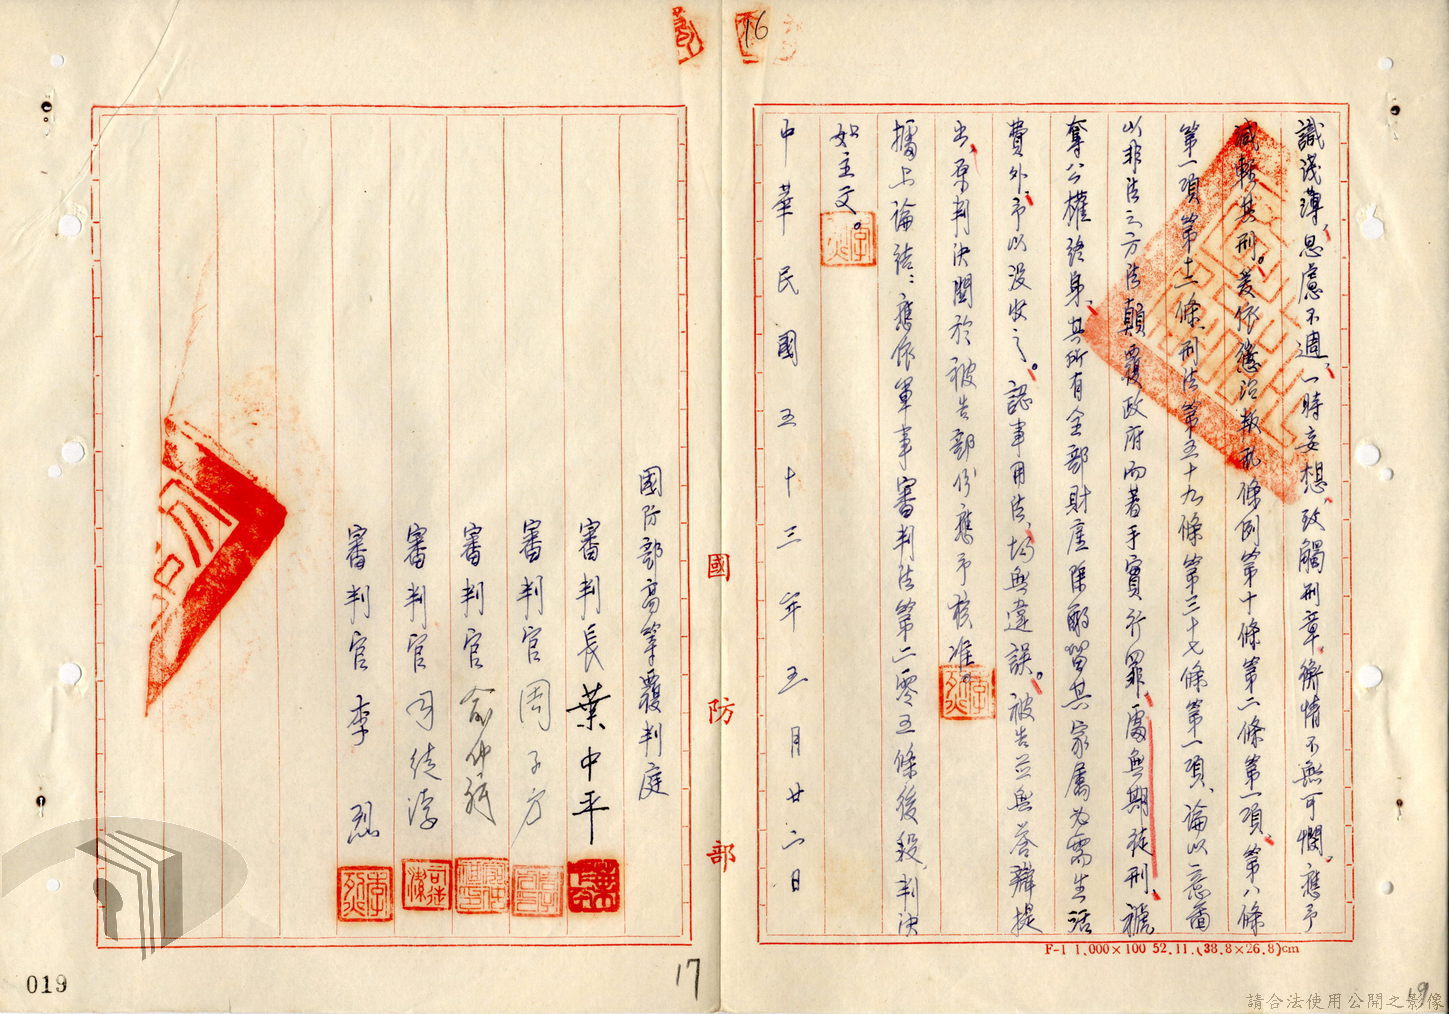 16
識淺薄,思慮不週,一時妄想,致觸刑章,衡情不無可憫,應予
減輕其刑。爰依懲治叛亂條例第十條第二條第一項、第八條
第一項第十二條、刑法第五十九條第三十七條第一項、論以意圖
以非法之方法顛覆政府而著手實行罪,處無期徒刑,褫
奪公權終身,其所有全部財產除酌留其家屬必需生活
費外,予以沒收之。認事用法,均無違誤。被告並無答辯提
出,原判決關於被告部份應予核准。
據上論結:應依軍事審判法第二零五條後段,判決
如主文。
中華民國五十三年五月廿二日
F-1 1,000×100 52.11.(38.8×26.8)cm
國防部
國防部高等覆判庭
審判長葉中平
審判官周子方
審判官俞仲
審判官司徒
審判官李烈
019
17
19
請合法使用公開之影像